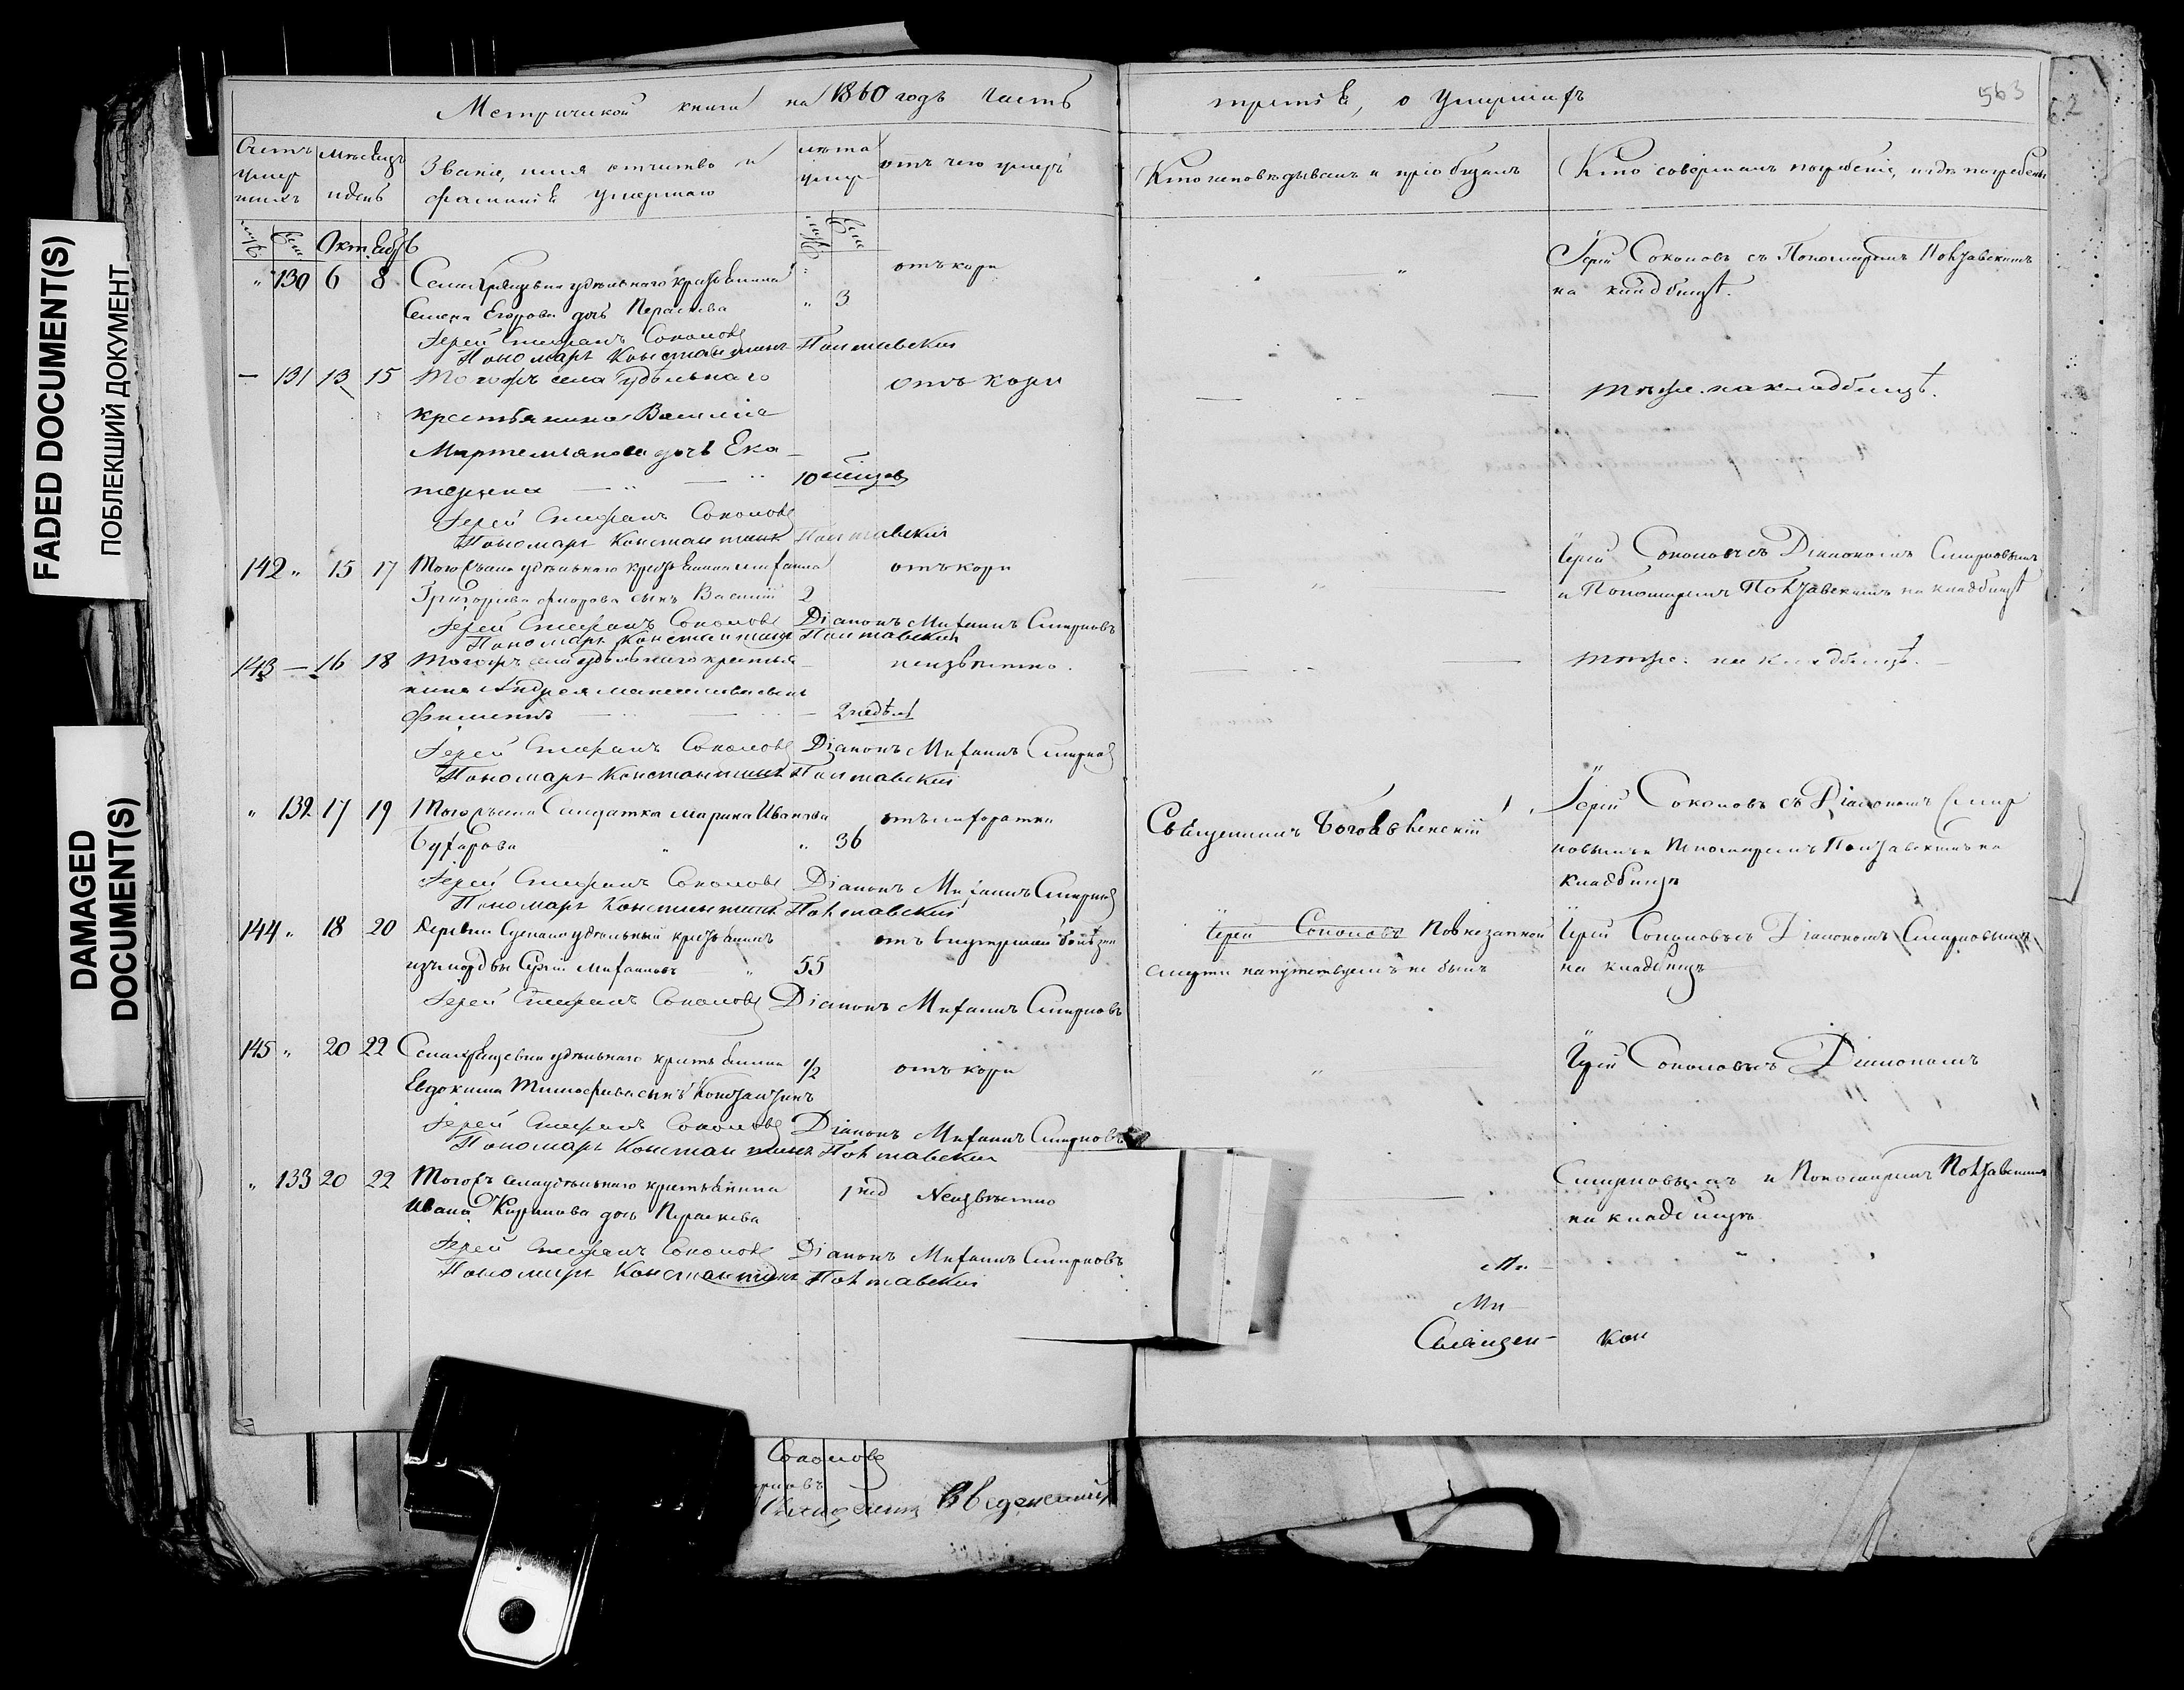 FADED DOCUMENT(S)
ПОБЛЕКШИЙ ДОКУМЕНТ
DAMAGED
DOCUMENT(S)
Метрической книги на 1860 годъ часть
третія, о умершихъ
563
Счетъ умер шихъ
Мѣсяцъ и день
Званіе, имя отчество и фамилія умершаго
лѣта умер
отъ чего умеръ
Кто исповѣдывалъ и пріобщалъ
Кто совершалъ погребеніе, и гдѣ погребены
Октябрь
" 130 6 8 Села удѣльнаго крестьянина
Семена Егорова дочь Параскева " 3
отъ кори
Іерей Соколовъ съ Пономаремъ Полтавскимъ
на кладбищѣ.
Іерей Стефанъ Соколовъ
Пономарь Константинъ Полтавскій
— 131 13 15 Тогожъ села удѣльнаго
крестьянина Василія
Мартемьянова дочь Ека-
терина 10 мѣсяцов
отъ кори
тѣже. на кладбищѣ.
Іерей Стефанъ Соколовъ
Пономарь Константинъ Полтавскій
142 " 15 17 Тогожъ села удѣльнаго крестьянина Михаила
Григорьева сынъ Василій 2
отъ кори
Іерей Соколовъ съ Діакономъ Смирновымъ
и Пономаремъ Полтавскимъ на кладбищѣ
Іерей Стефанъ Соколовъ Діаконъ Михаилъ Смирновъ
Пономарь Константинъ Полтавскій
143 — 16 18 Тогожъ села удѣльнаго крестья-
нина Андрея сынъ
Филиппъ 2 недѣли
неизвѣстно.
тѣже. на кладбищѣ.
Іерей Стефанъ Соколовъ Діаконъ Михаилъ Смирновъ
Пономарь Константинъ Полтавскій
" 132 17 19 Тогожъ села Солдатка Марина Иванова
" 36
отъ лихорадки
Священникъ Богоявленскій
Іерей Соколовъ съ Діакономъ Смир
новымъ и Пономаремъ Полтавскимъ на
кладбищѣ
Іерей Стефанъ Соколовъ Діаконъ Михаилъ Смирновъ
Пономарь Константинъ Полтавскій
144 " 18 20 Деревни удѣльный крестьянинъ
изъ мордвы Сергій Михаиловъ " 55
отъ внутренней болѣзни
Іерей Соколовъ По внезапной
смерти напутствуемъ не былъ
Іерей Соколовъ съ Діакономъ Смирновымъ
на кладбищѣ
Іерей Стефанъ Соколовъ Діаконъ Михаилъ Смирновъ
145 " 20 22 Села удѣльнаго крестьянина
Евдокима Тимофѣева сынъ Константинъ 1/2
отъ кори
Іерей Соколовъ съ Діакономъ
Іерей Стефанъ Соколовъ Діаконъ Михаилъ Смирновъ
Пономарь Константинъ Полтавскій
" 133 20 22 Тогожъ села удѣльнаго крестьянина
Ивана Кирилова дочь Параскева 1 нед
Неизвѣстно
Смирновымъ и Пономаремъ Полтавскимъ
на кладбищѣ
Іерей Стефанъ Соколовъ Діаконъ Михаилъ Смирновъ
Пономарь Константинъ Полтавскій
Ми-
Священ- кои
Соколовъ
Введенскій